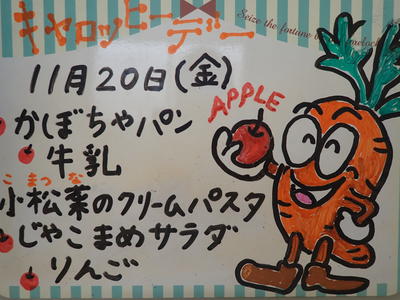 キャロッピーデー
Seize the fortune
11月20日(金)
APPLE
かぼちゃパン
牛乳
こまつな
小松菜のクリームパスタ
じゃこまめサラダ
りんご